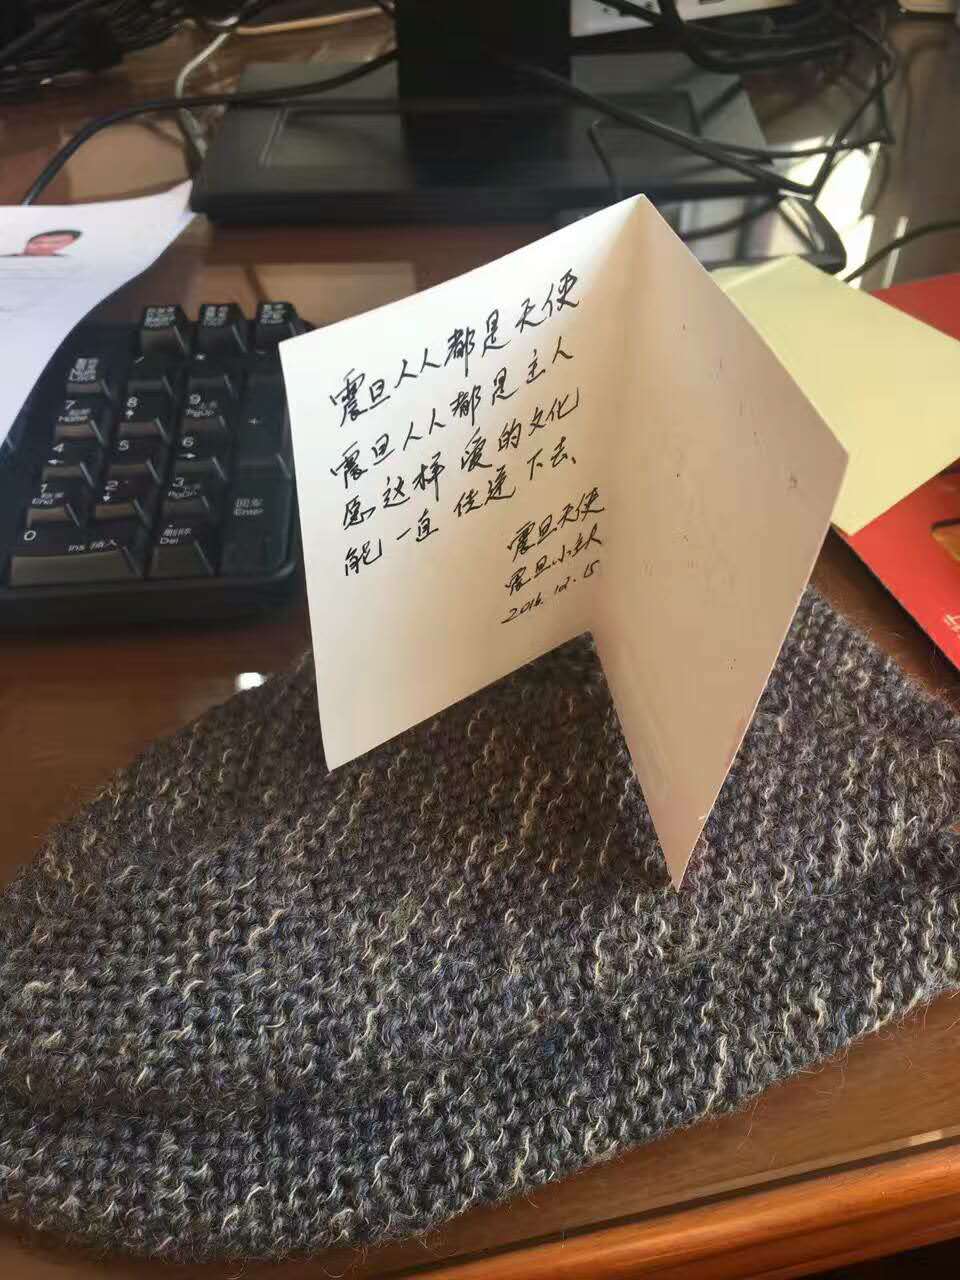 震旦人人都是天使
震旦人人都是主人
愿这样爱的文化
能一直传递下去、
震旦天使
震旦小主人
2016.12.15
7
8
9
PgUp
+
4
5
6
1
End
2
3
PgDn
0
Ins 插入
Del
Enter